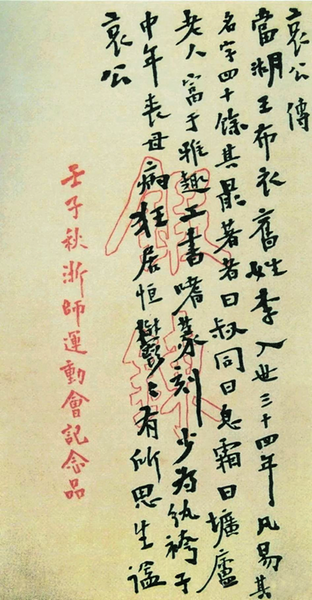 哀公傳
當湖王布衣舊姓李入世三十四年凡易其
名字四十餘其最著者曰叔同曰息霜曰壙廬
老人富于雅趣工書嗜篆刻少為紈袴子
中年喪母病狂居恒鬱鬱有所思生謚
哀公
壬子秋浙師運動會記念品